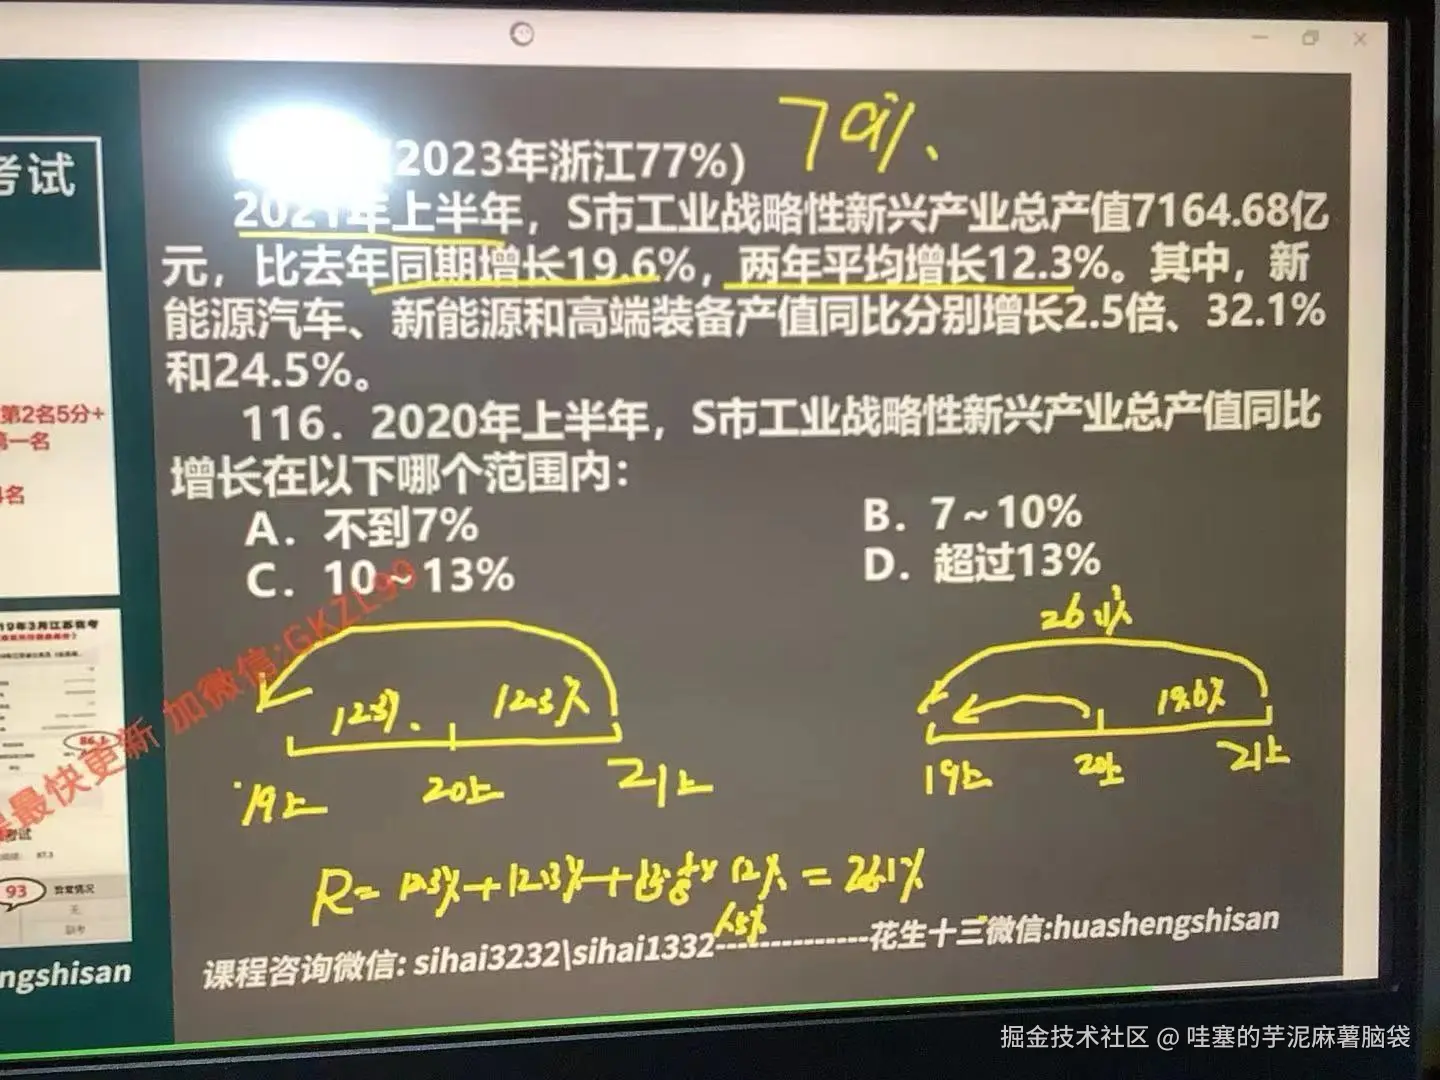 考试
第2名5分+
第一名
名
19年3月江苏省考
93
异常情况
无
缺考
ngshisan
79%、
(2023年浙江77%)
2021年上半年，S市工业战略性新兴产业总产值7164.68亿
元，比去年同期增长19.6%，两年平均增长12.3%。其中，新
能源汽车、新能源和高端装备产值同比分别增长2.5倍、32.1%
和24.5%。
116．2020年上半年，S市工业战略性新兴产业总产值同比
增长在以下哪个范围内：
A．不到7%
B．7～10%
C．10～13%
D．超过13%
最快更新 加微信:GKZL99
12.3%
12.3%
19上
20上
21上
26.1%
19.6%
19上
20上
21上
R=12.3%+12.3%+
12% = 26.1%
1.5%
课程咨询微信: sihai3232\sihai1332--------------花生十三微信:huashengshisan
掘金技术社区 @ 哇塞的芋泥麻薯脑袋